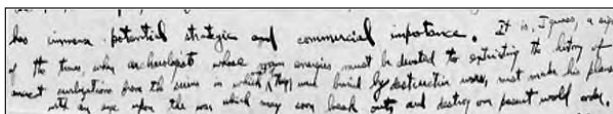 has immense potential strategic and commercial importance. It is, I guess, a sign
of the times, when archeologist whose major energies must be devoted to extricating the history of
ancient civilizations from the ruins in which they were buried by destructive wars, must make his plans
with an eye upon the war which may soon break out, and destroy our present world order.